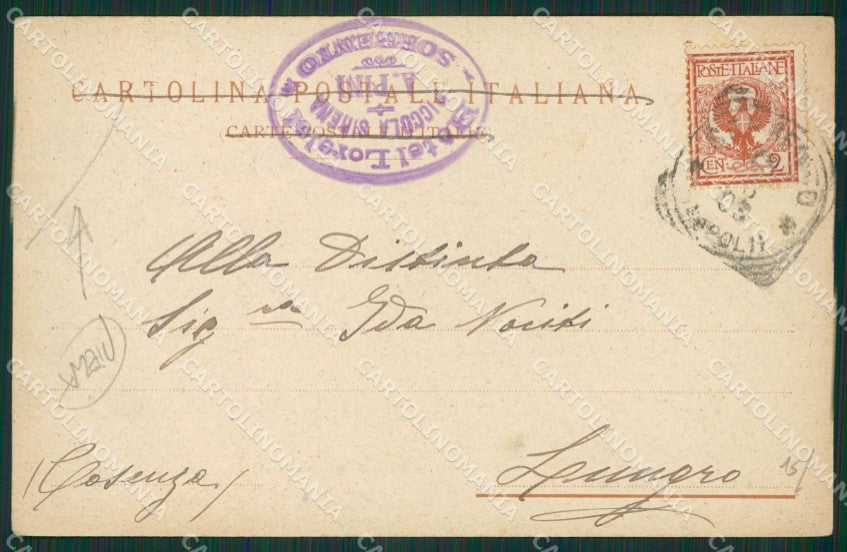 CARTOLINA POSTALE ITALIANA
CARTE POSTALE D'ITALIE
Hotel Lorelei
PICCOLA SIRENA
SORRENTO
POSTE·ITALIANE
CEN 2
NAPOLI
Alla Distinta
Sig ra Ida Nociti
Lungro
(Cosenza)
15/
CARTOLINOMANIA